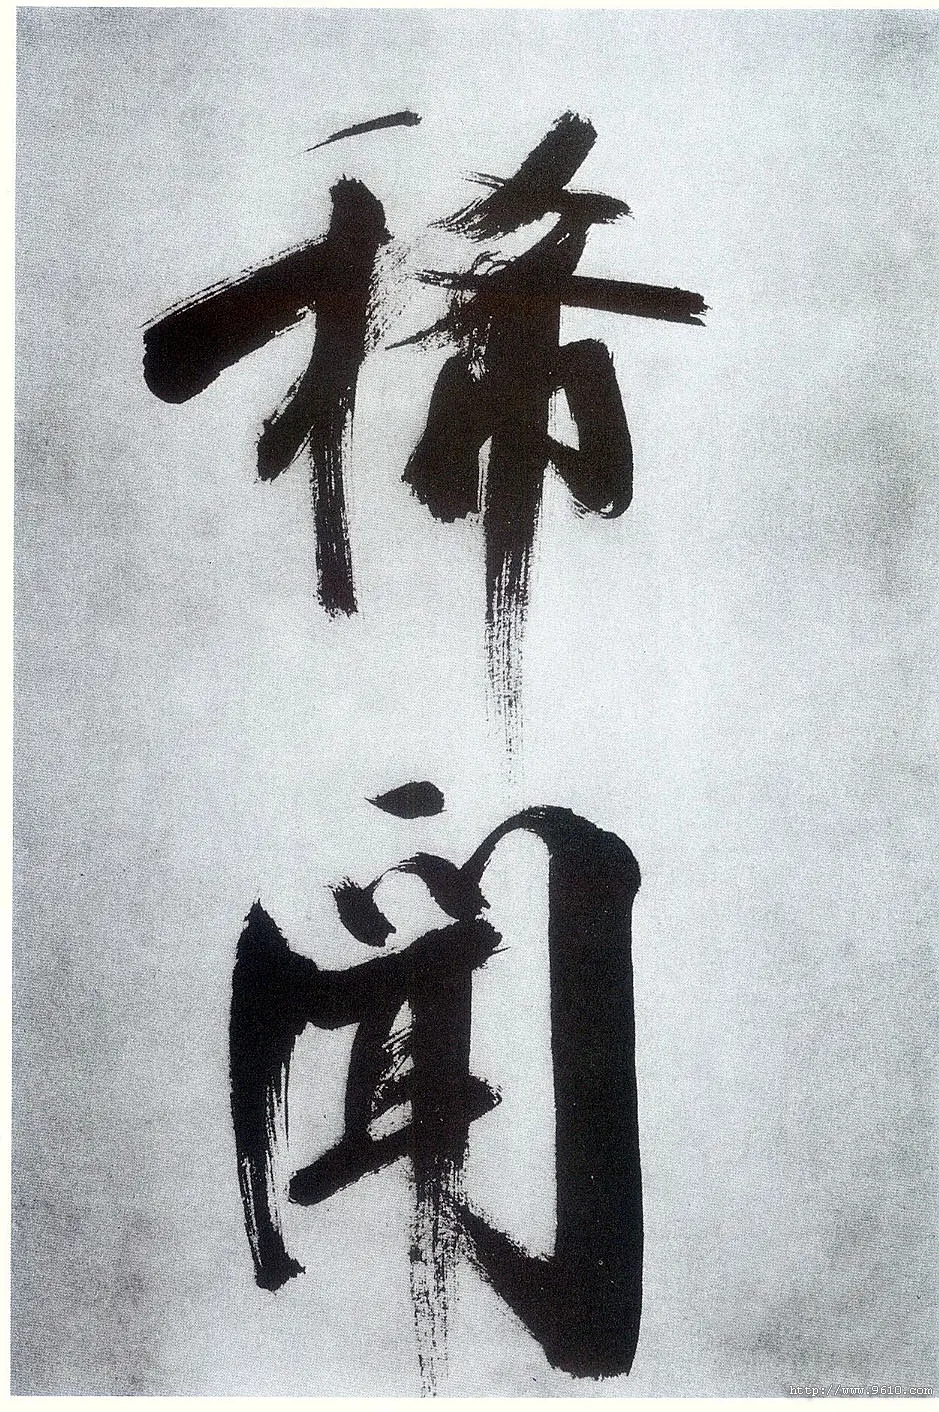 稀聞
http://www.9610.com